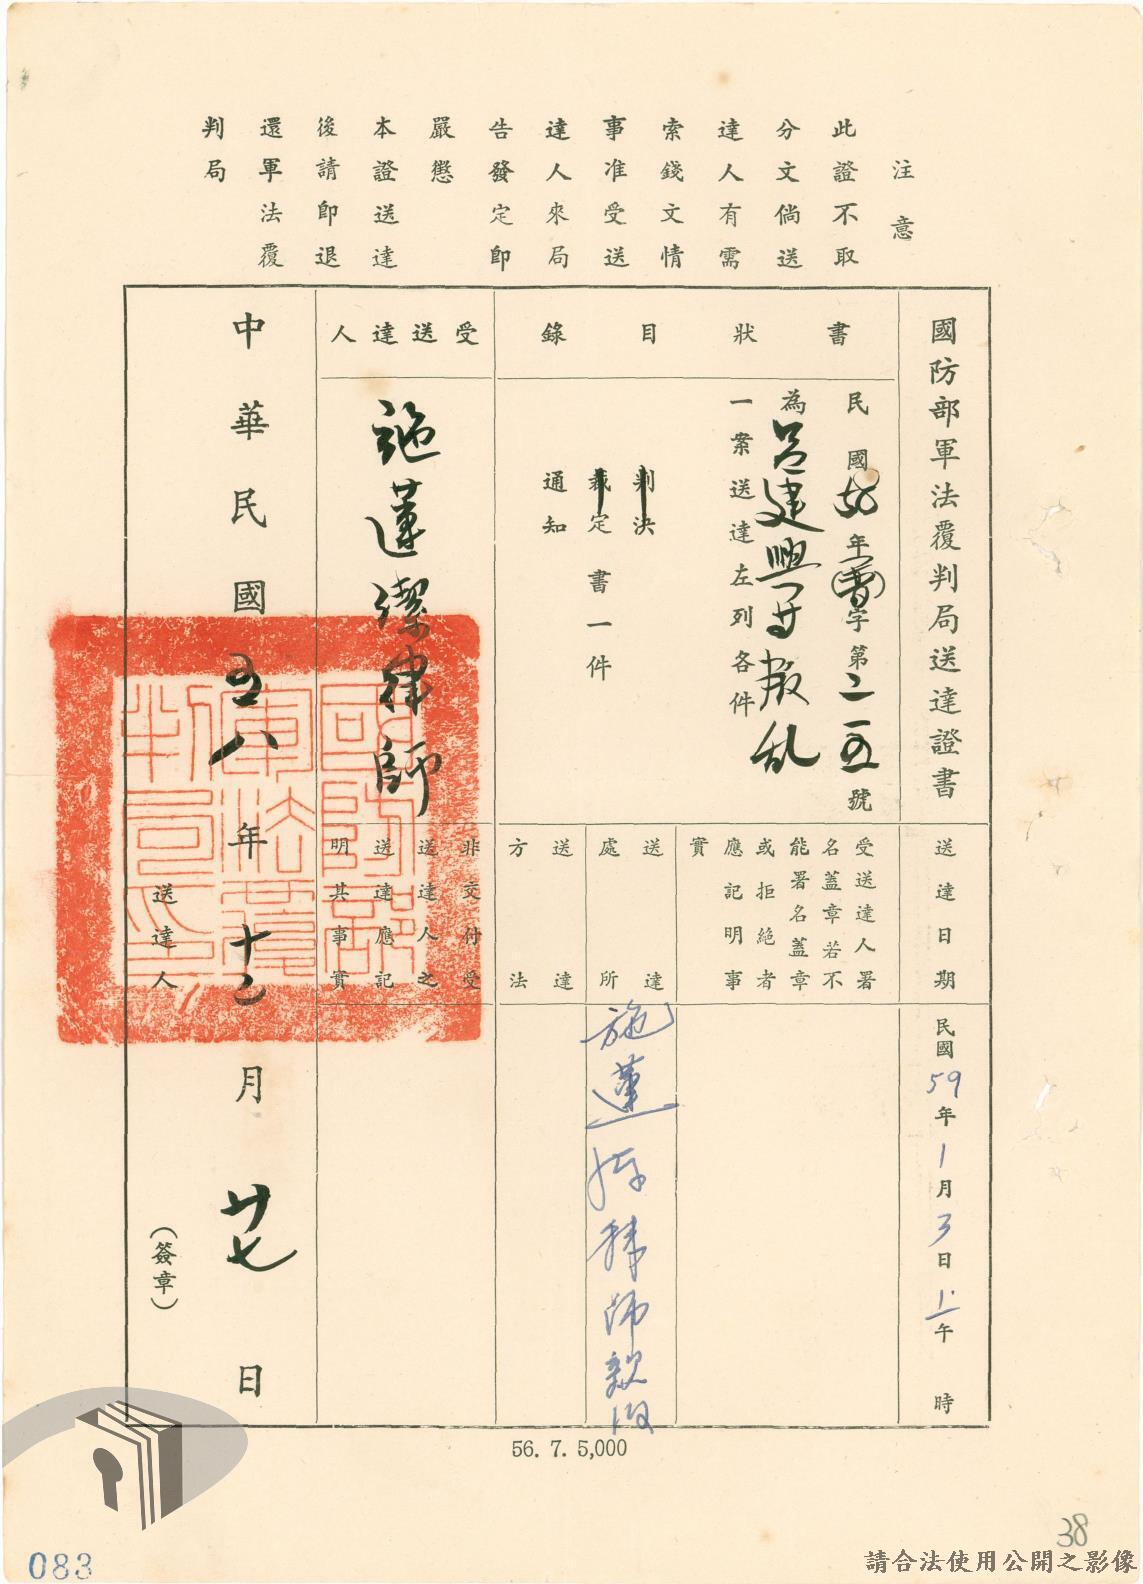 注意
此證不取
分文倘送
達人有需
索錢文情
事准受送
達人來局
告發定即
嚴懲
本證送達
後請即退
還軍法覆
判局
國防部軍法覆判局送達證書
書狀目錄
民國58年(普)字第二一五號
為呂建興等叛乱
一案送達左列各件
判決
裁定書一件
通知
受送達人
施蓮潔律師
送達日期
民國59年1月3日上午 時
受送達人署
名蓋章若不
能署名蓋章
或拒絕者
應記明事
實
送達處所
施蓮潔律師親收
送達方法
非交付受
送達人之
送達應記
明其事實
中華民國五八年十二月廿七日
送達人 (簽章)
國防部軍法覆判局印
56. 7. 5,000
083
38
請合法使用公開之影像